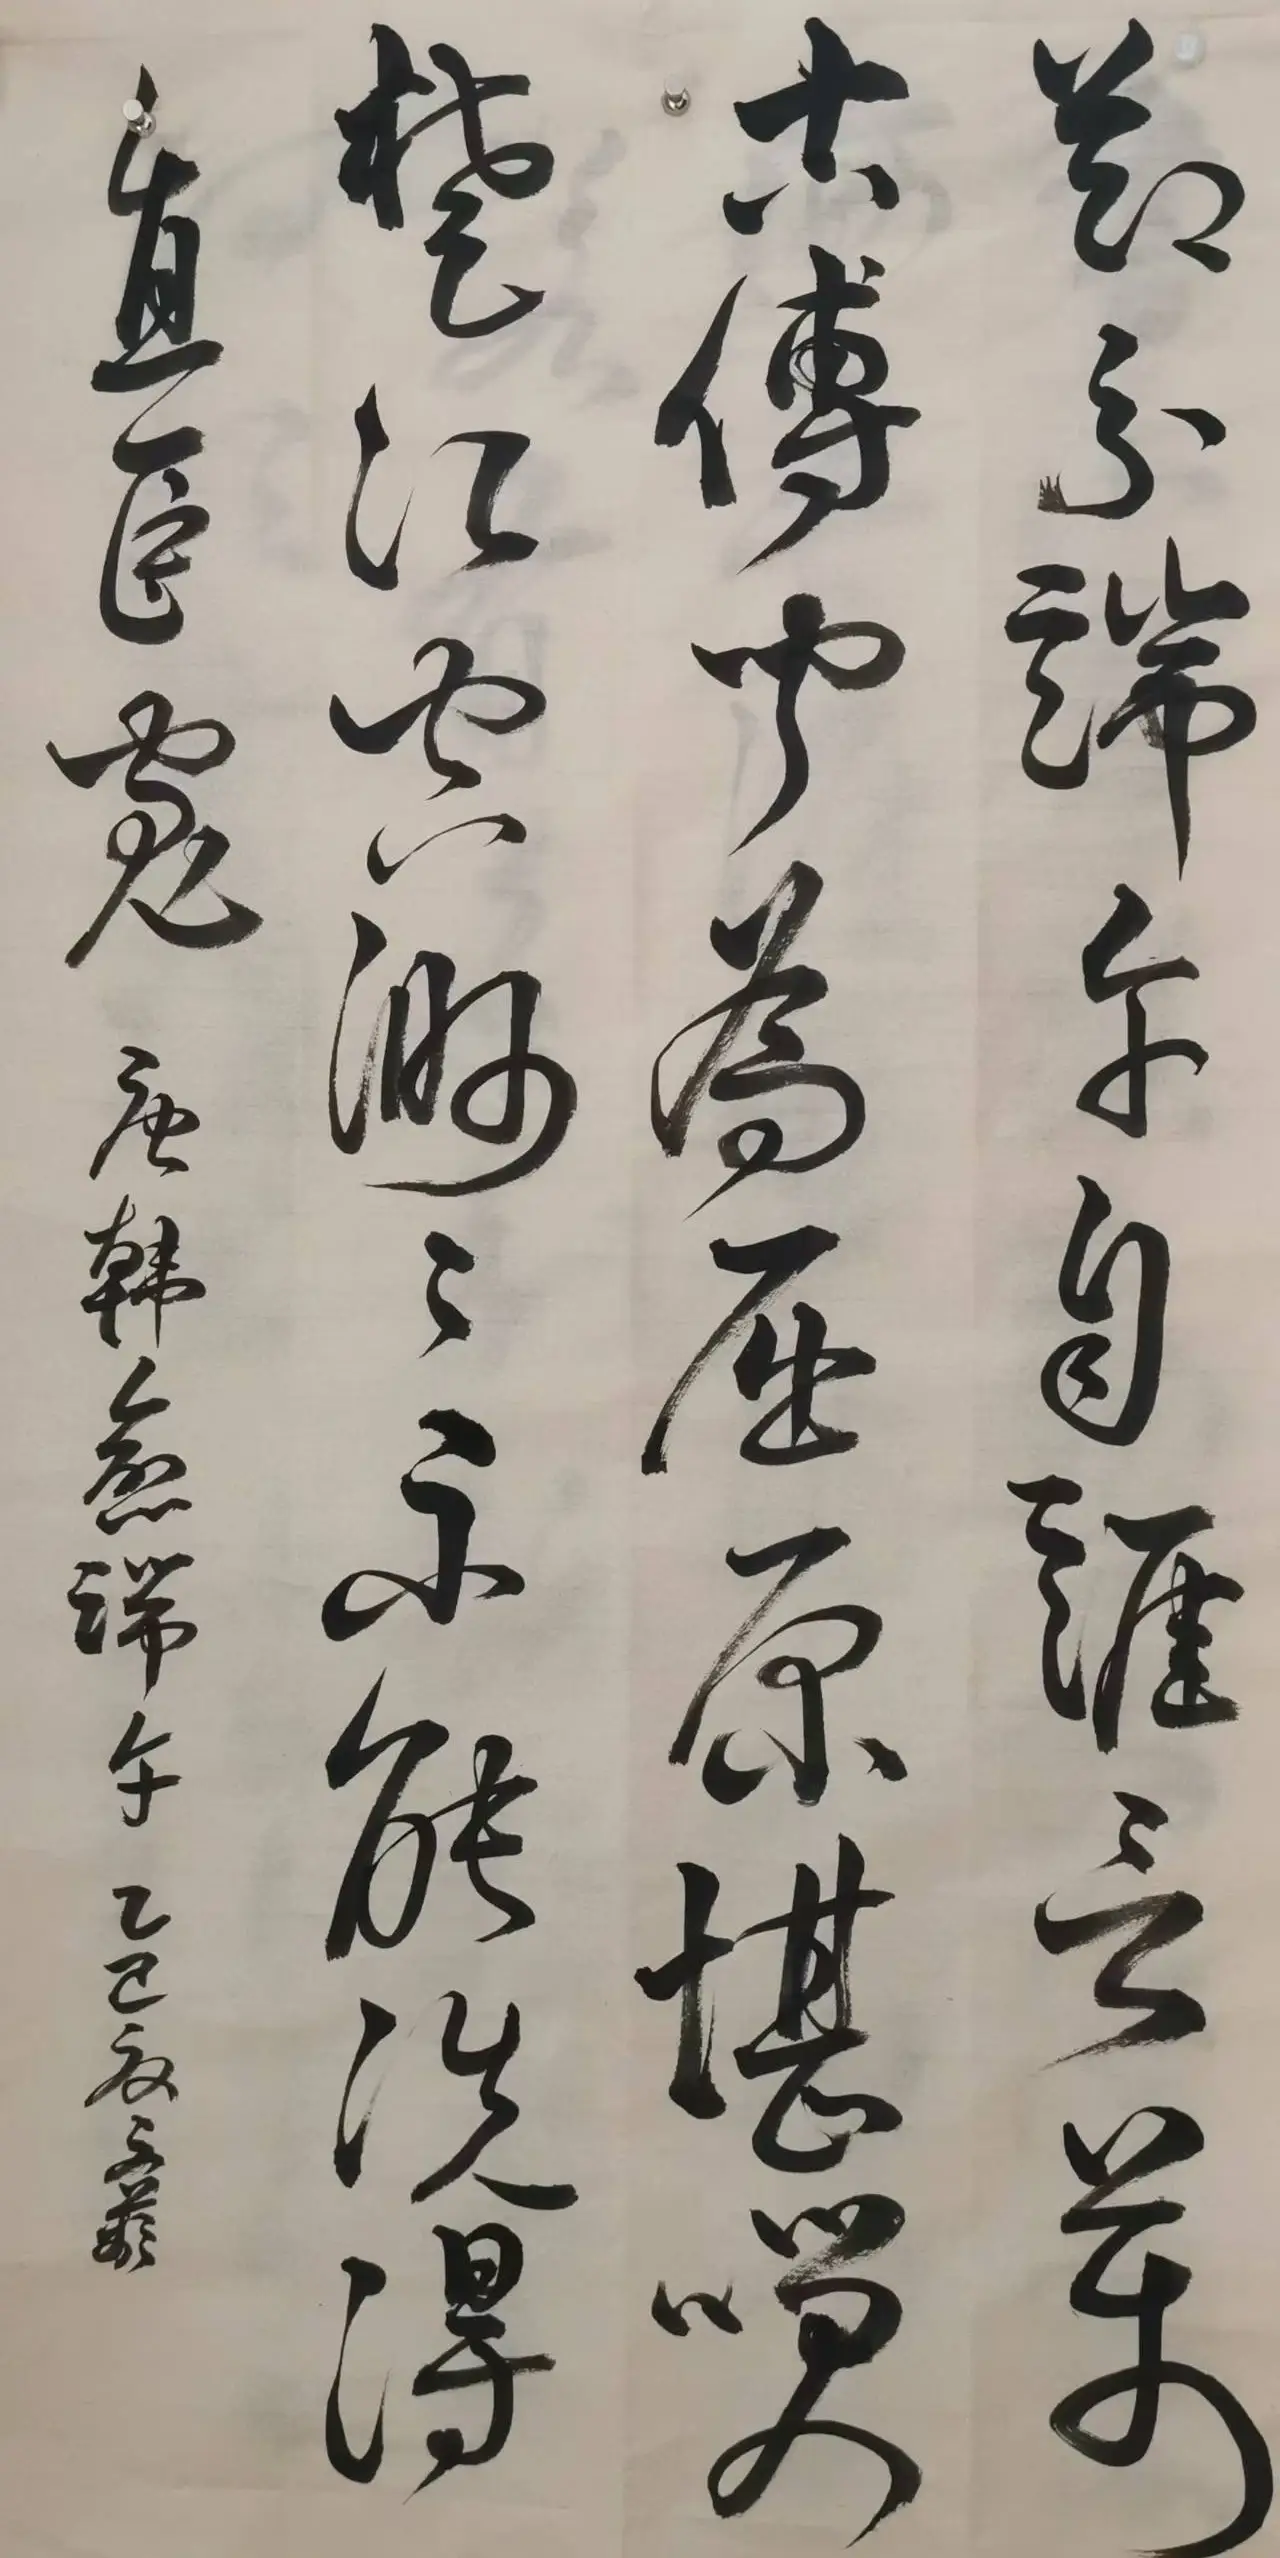 節分端午自誰言萬
古傳聞為屈原堪笑
楚江空渺々不能洗得
直臣冤 唐韓愈端午 乙巳